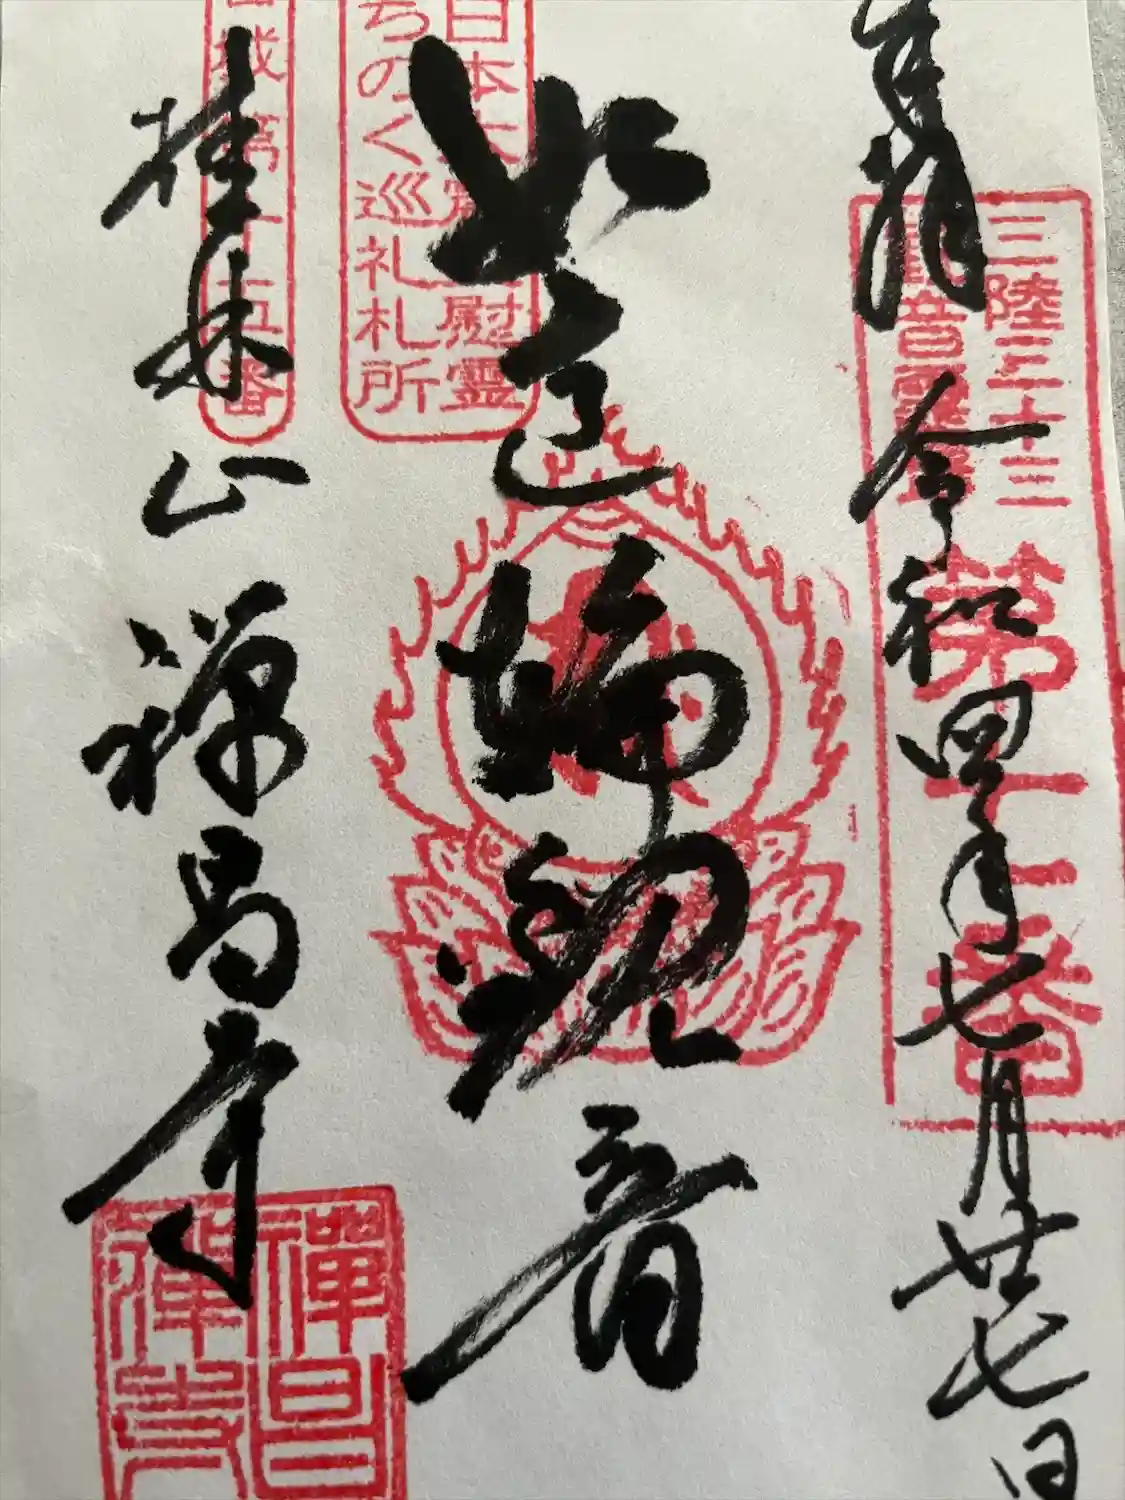 奉拝 令和四年七月廿七日
三陸三十三
観音霊場
第十二番
如意輪観音
日本大震災慰霊
ちのく巡礼札所
宮城第十五番
桂林山 禅昌寺
禅昌
禅寺